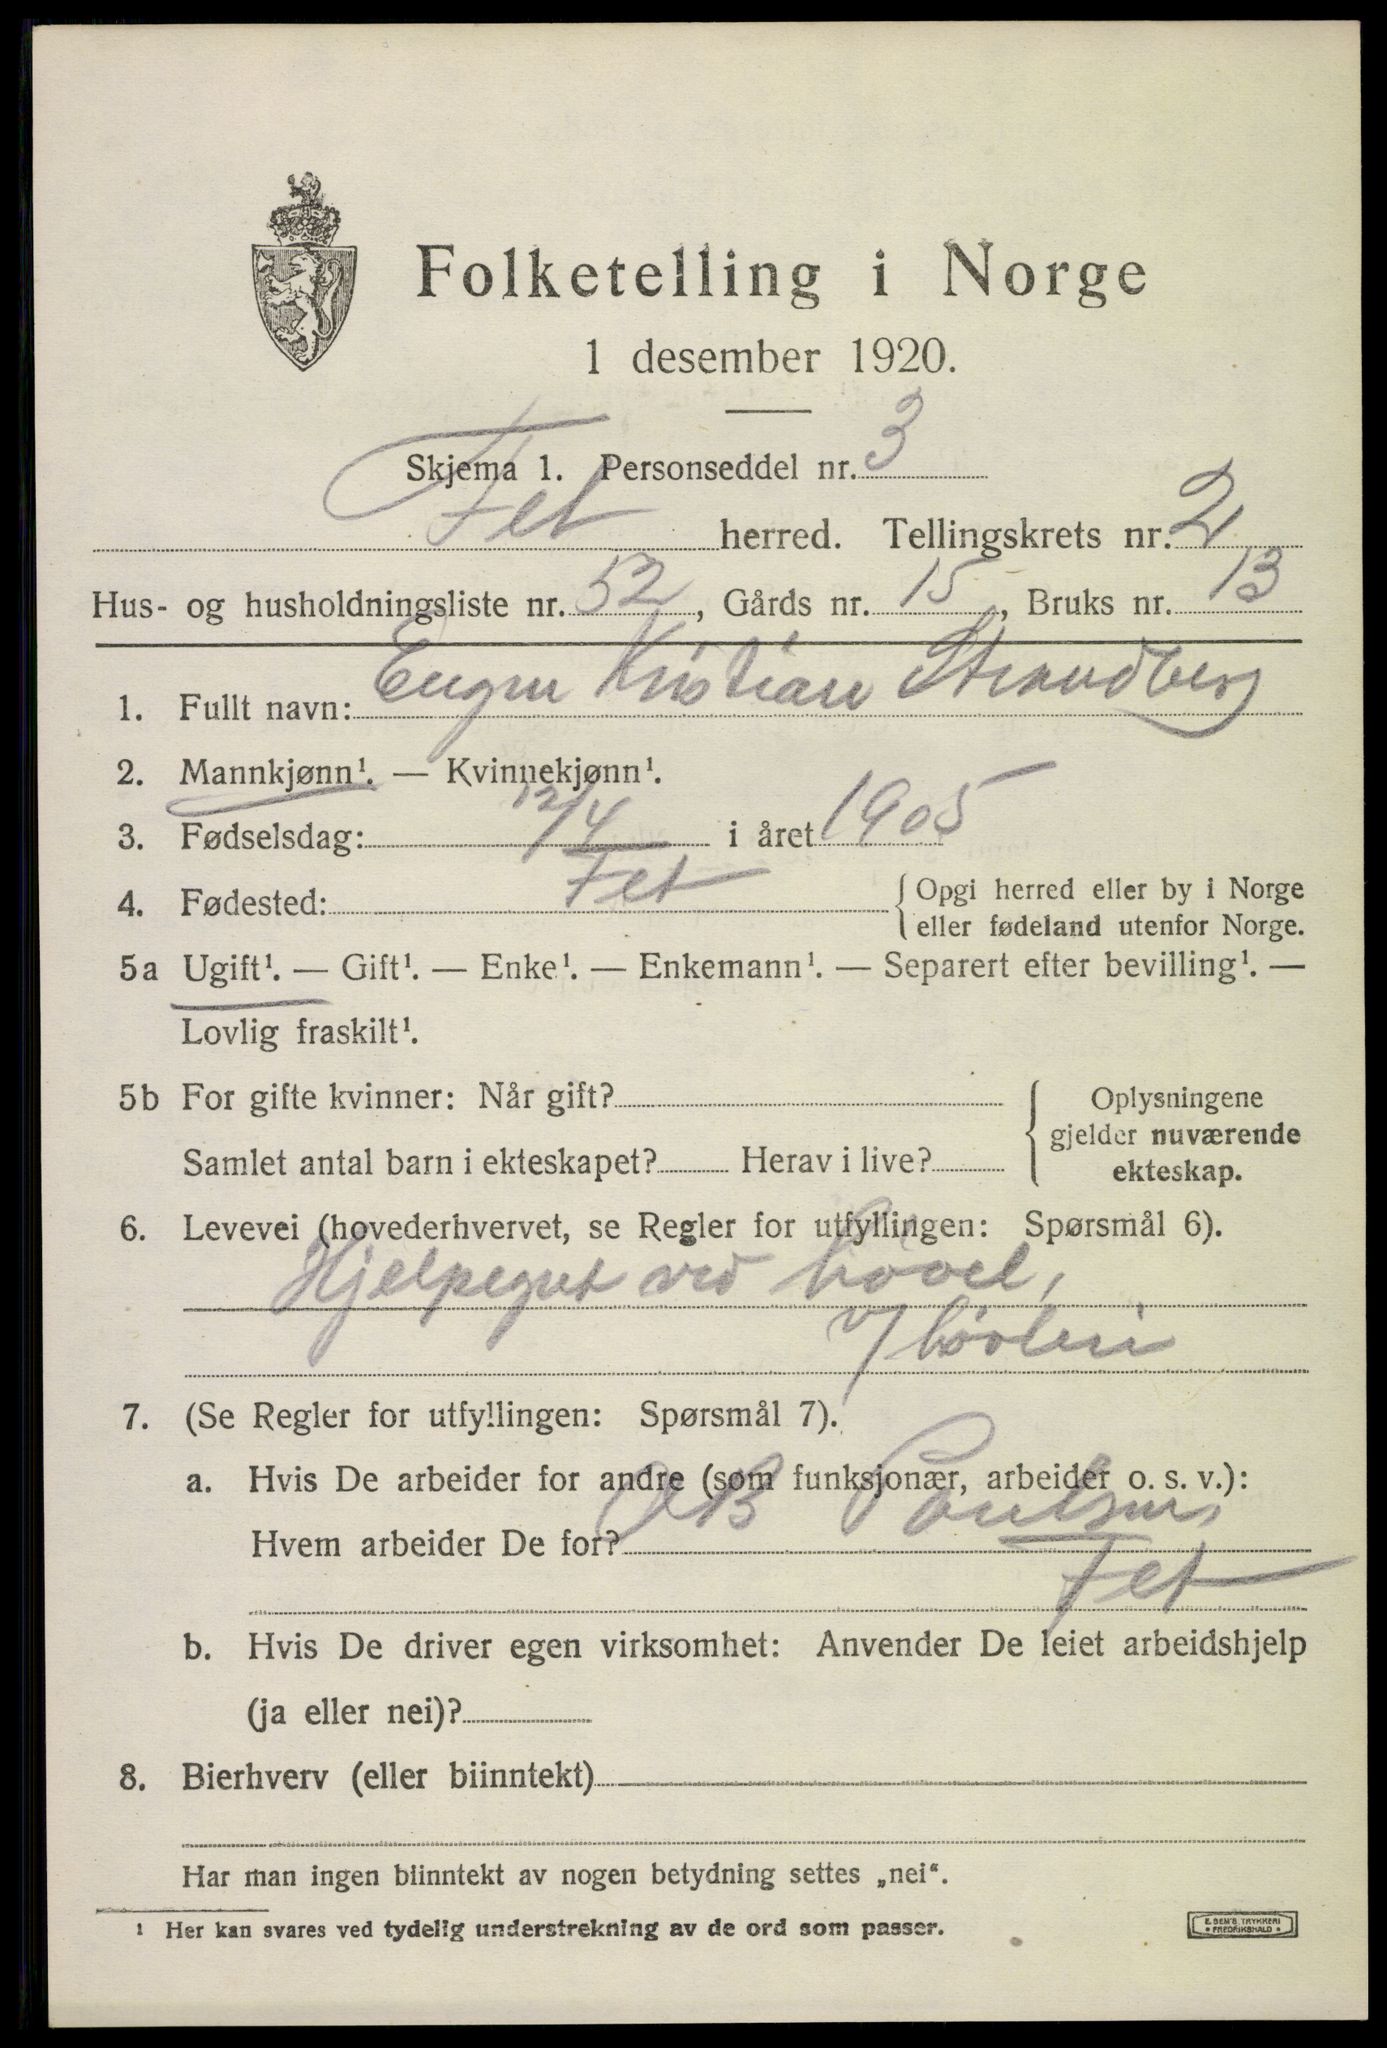 Folketelling i Norge
1 desember 1920.
Skjema 1. Personseddel nr. 3
Fet herred. Tellingskrets nr. 2
Hus- og husholdningsliste nr. 52, Gårds nr. 15, Bruks nr. 13
1. Fullt navn: Eugen Kristian Strandberg
2. Mannkjønn¹. — Kvinnekjønn¹.
3. Fødselsdag: 12/4 i året 1905
4. Fødested: Fet { Opgi herred eller by i Norge
eller fødeland utenfor Norge.
5a Ugift¹. — Gift¹. — Enke¹. — Enkemann¹. — Separert efter bevilling¹. —
Lovlig fraskilt¹.
5b For gifte kvinner: Når gift?
Samlet antal barn i ekteskapet? Herav i live?
Oplysningene
gjelder nuværende
ekteskap.
6. Levevei (hovederhvervet, se Regler for utfyllingen: Spørsmål 6).
Hjelpegut ved høvel,
v/
7. (Se Regler for utfyllingen: Spørsmål 7).
a. Hvis De arbeider for andre (som funksjonær, arbeider o. s. v.):
Hvem arbeider De for? Paulsen,
Fet
b. Hvis De driver egen virksomhet: Anvender De leiet arbeidshjelp
(ja eller nei)?
8. Bierhverv (eller biinntekt)
Har man ingen biinntekt av nogen betydning settes „nei“.
¹ Her kan svares ved tydelig understrekning av de ord som passer.
E. SEM'S TRYKKERI
• FREDRIKSHALD •